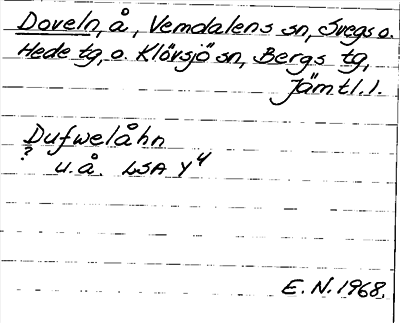 Doveln, å, Vemdalens sn, Svegs o.
Hede tg, o. Klövsjö sn, Bergs tg,
Jämtl. l.
Dufwelåhn
? u.å. LSA Y4
E. N. 1968.